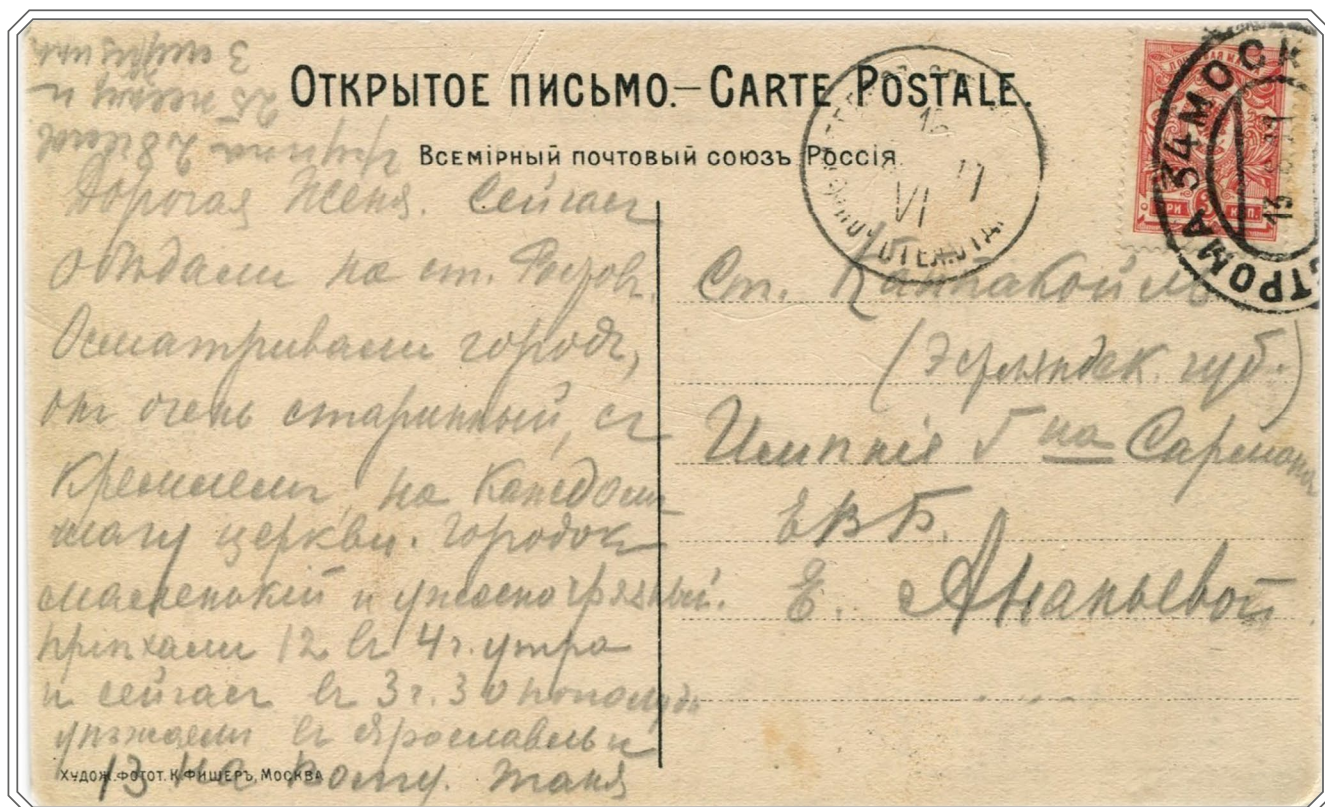 ОТКРЫТОЕ ПИСЬМО.—CARTE POSTALE.
ВСЕМІРНЫЙ ПОЧТОВЫЙ СОЮЗЪ РОССІЯ.
группа 28 челов
25 женщ и
3 мужчин
Дорогая Женя. Сейчас
обѣдали на ст. Ростовъ.
Осматривали городъ,
онъ очень старинный, съ
кремлемъ, на каждом
шагу церкви. Городокъ
маленькій и ужасно грязный.
пріѣхали 12 въ 4 г. утра
и сейчасъ въ 3 г. 30 пополуд
уѣзжаем въ Ярославль и
13 на Волгу. Таня
Ст. Каппакойль
(Эстляндск. губ.)
Имѣніе Г на Сармана
ЕВБ.
Е. Ананьевой
МОСК 34 ТРОМА
13
VI
ТРИ 3 КОП.
ХУДОЖ. ФОТОТ. К. ФИШЕРЪ, МОСКВА